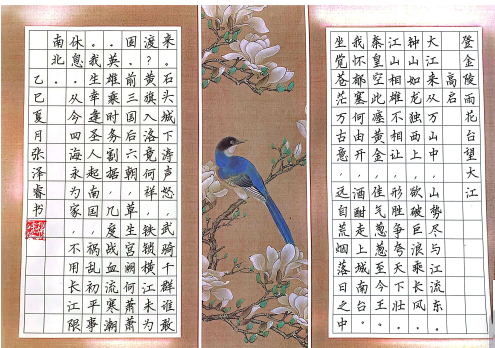 登金陵雨花台望大江
高启
大江来从万山中，山势尽与江流东。
钟山如龙独西上，欲破巨浪乘长风。
江山相雄不相让，形胜争夸天下壮。
秦皇空此瘗黄金，佳气葱葱至今王。
我怀郁塞何由开，酒酣走上城南台。
坐觉苍茫万古意，远自荒烟落日之中
来。石头城下涛声怒，武骑千群谁敢
渡？黄旗入洛竟何祥，铁锁横江未为
固。前三国后六朝，草生宫阙何萧萧
。英雄乘时务割据，几度战血流寒潮
。我生幸逢圣人起南国，祸乱初平事
休息。从今四海永为家，不用长江限
南北。
乙巳夏月张泽睿书